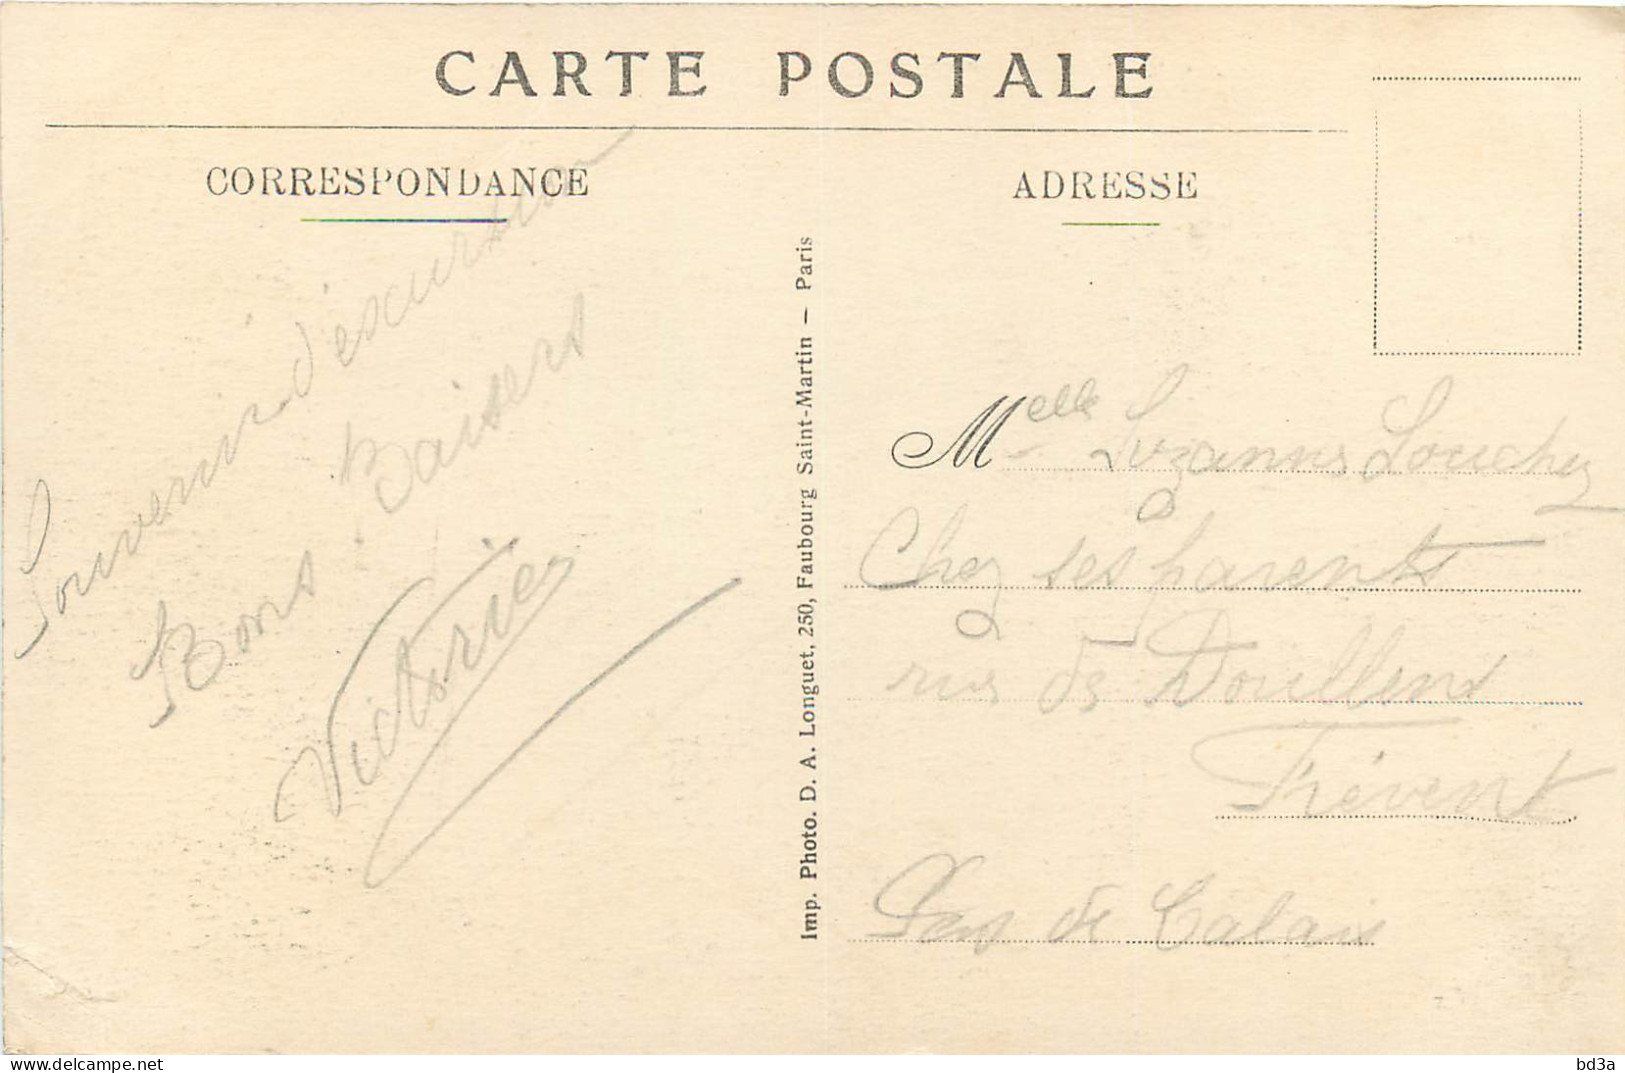 CARTE POSTALE
CORRESPONDANCE
Souvenir d'escursion
Bons Baisers
Victorien
Imp. Photo. D. A. Longuet, 250, Faubourg Saint-Martin — Paris
ADRESSE
Melle Suzanne Souchez
Chez ses parents
rue de Doullens
Frévent
Pas de Calais
www.delcampe.net
bd3a